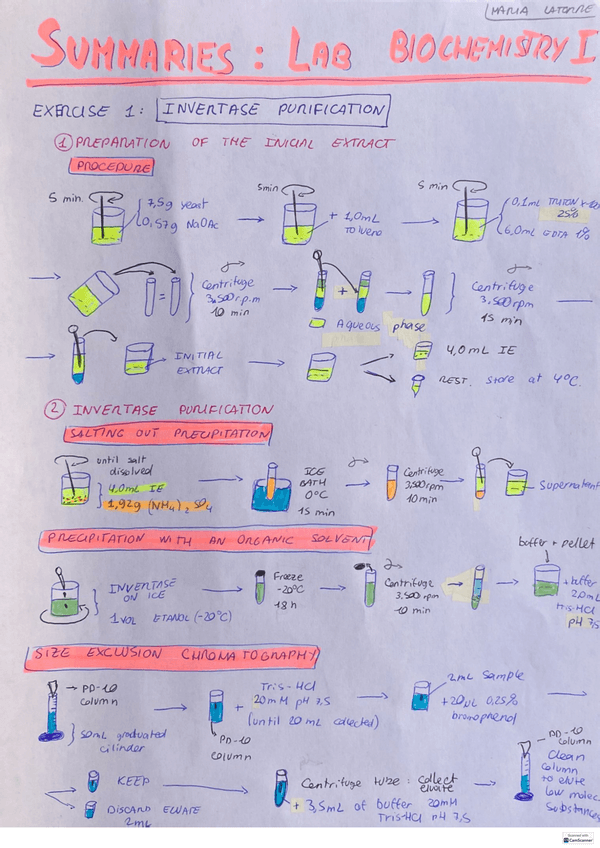 MARIA LATORRE
SUMMARIES: LAB BIOCHEMISTRY I
EXERCISE 1: INVERTASE PURIFICATION
① PREPARATION OF THE INICIAL EXTRACT
PROCEDURE
5 min.
7,5g yeast
0,57g NaOAc
5min
+ 1,0mL
TOLUENO
5 min
0,1mL TRITON
25%
6,0mL EDTA 1%
=
Centrifuge
3,500 r.p.m
10 min
+
Aqueous phase
Centrifuge
3,500 rpm
15 min
INITIAL
EXTRACT
4,0mL IE
REST. store at 4°C.
② INVERTASE PURIFICATION
SALTING OUT PRECIPITATION
until salt
disolved
4,0mL IE
1,92g (NH4)2 SO4
ICE
BATH
0°C
15 min
Centrifuge
3,500 rpm
10 min
Supernatant
PRECIPITATION WITH AN ORGANIC SOLVENT
INVERTASE
ON ICE
1 VOL ETANOL (-20°C)
Freeze
-20°C
18h
Centrifuge
3.500 rpm
10 min
buffer + pellet
+ buffer
20mM
Tris-HCl
pH 7,5
SIZE EXCLUSION CHROMATOGRAPHY
PD-10
column
50mL graduated
cilinder
+
Tris-HCl
20mM pH 7,5
(until 20 mL collected)
PD-10
column
2mL sample
+20µL 0,25%
bromophenol
KEEP
DISCARD ELUATE
2mL
Centrifuge tube: collect
eluate
+ 3,5mL of buffer 20mM
Tris-HCl pH 7,5
PD-10
column
Clean
column
to elute
low molec
substances
Scanned with
CamScanner